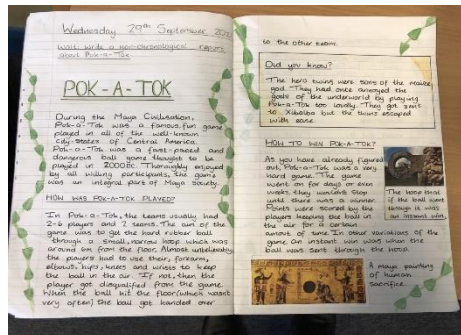 Wednesday 29th September 2021
WALT: Write a non-chronological report
about Pok-a-Tok
POK-A-TOK
During the Maya Civilisation,
Pok-a-Tok was a famous, fun game
played in all of the well-known
city-states of Central America.
Pok-a-Tok was a fast-paced and
dangerous ball game thought to be
played in 2000BC. Thoroughly enjoyed
by all willing participants, the game
was an integral part of Maya Society.
HOW WAS POK-A-TOK PLAYED?
In Pok-a-Tok, the teams usually had
2-6 players and 2 teams. The aim of the
game was to get the hard rubber ball
through a small, narrow hoop which was
around 6m from the floor. Almost unbelievably,
the players had to use their, forearm,
elbows, hips, knees and wrists to keep
the ball in the air. If not, then the
player got disqualified from the game.
When the ball hit the floor (which wasn't
very often) the ball got handed over
to the other team.
Did you know?
The hero twins were sons of the maize
god. They had once annoyed the
gods of the underworld by playing
Pok-a-Tok too loudly. They got sent
to Xibalba but the twins escaped
with ease.
HOW TO WIN POK-A-TOK?
As you have already figured
out, Pok-a-Tok was a very
hard game. The game
went on for days or even
weeks, they wouldn't stop
until there was a winner.
Points were scored by the
players keeping the ball in
the air for a certain
amount of time. In other variations of the
game. An instant win was when the
ball was sent through the hoop.
The hoop that
if the ball went
through it was
an instant win.
A maya painting
of human
sacrifice.